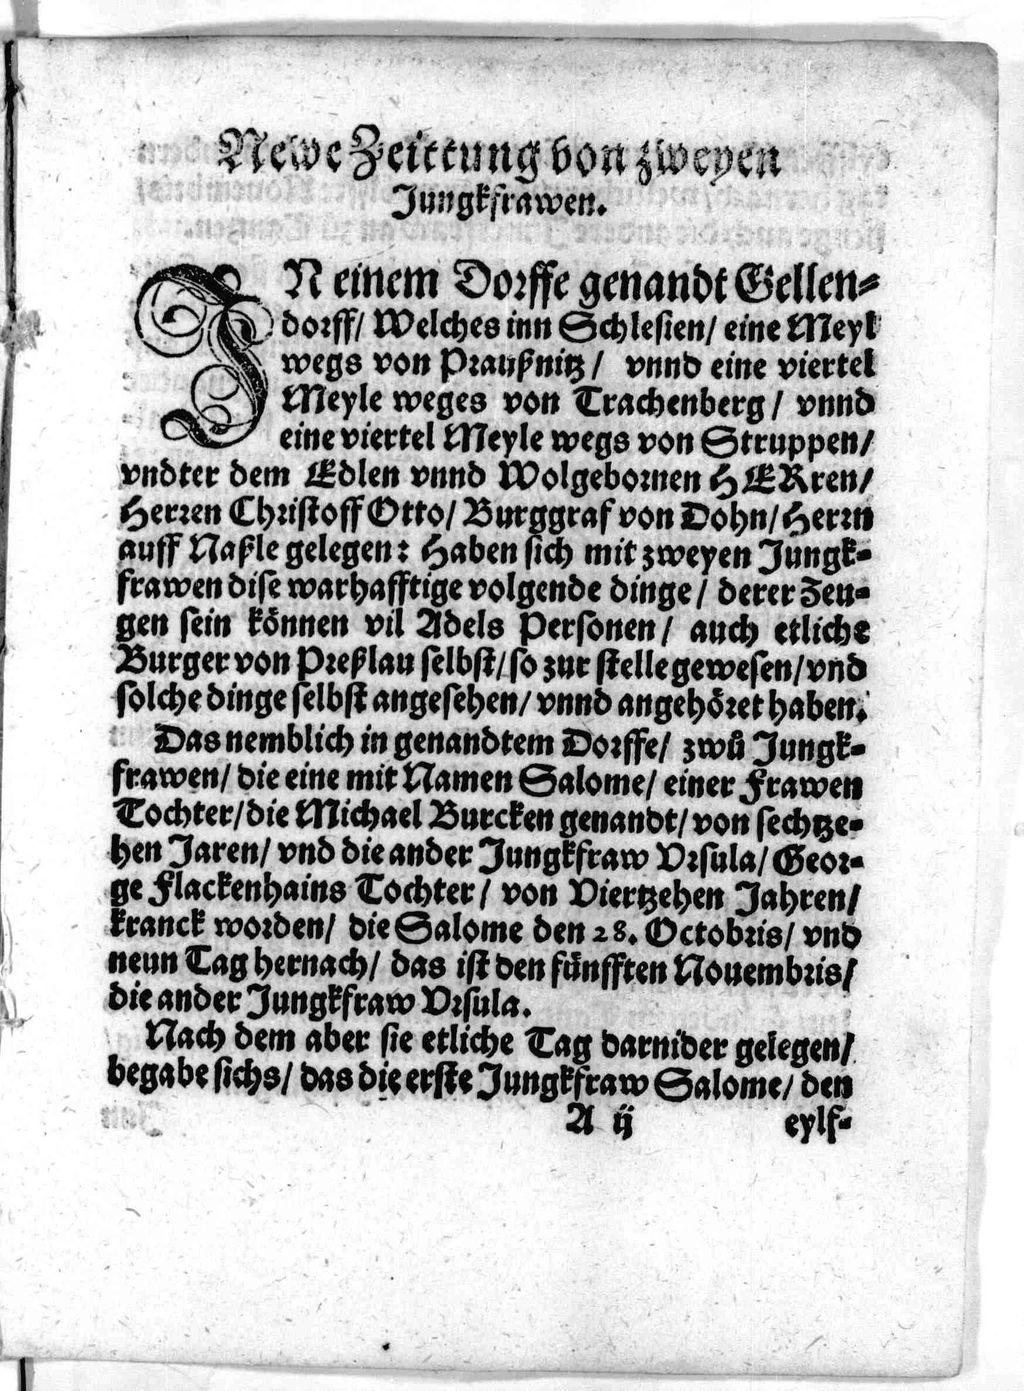 Newe Zeittung von zweyen
Jungkfrawen.
IN einem Dorffe genandt Gellen-
dorff/ Welches inn Schlesien/ eine Meyl
wegs von Praußnitz / vnnd eine viertel
Meyle weges von Trachenberg / vnnd
eine viertel Meyle wegs von Struppen/
vndter dem Edlen vnnd Wolgebornen HERren/
Herren Christoff Otto/ Burggraf von Dohn/ Herrn
auff Naßle gelegen: Haben sich mit zweyen Jungk-
frawen dise warhafftige volgende dinge / derer Zeu-
gen sein können vil Adels Personen / auch etliche
Burger von Preßlau selbst/ so zur stelle gewesen/ vnd
solche dinge selbst angesehen/ vnnd angehöret haben.
Das nemblich in genandtem Dorffe/ zwů Jungk-
frawen/ die eine mit Namen Salome/ einer Frawen
Tochter/ die Michael Burcken genandt/ von sechtze-
hen Jaren/ vnd die ander Jungkfraw Vrsula/ Geor-
ge Flackenhains Tochter / von Viertzehen Jahren/
kranck worden/ die Salome den 28. Octobris/ vnd
neun Tag hernach/ das ist den fünfften Nouembris/
die ander Jungkfraw Vrsula.
Nach dem aber sie etliche Tag darnider gelegen/
begabe sichs/ das die erste Jungkfraw Salome/ den
A ij eylf-